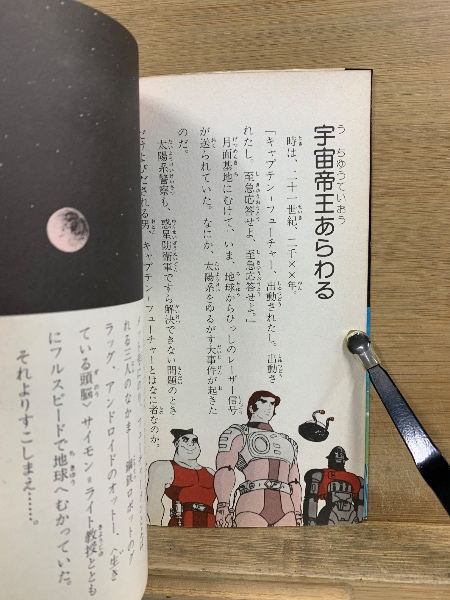 宇宙帝王あらわる
時は、二十一世紀、二千××年。
「キャプテン＝フューチャー、出動されたし。出動さ
れたし。至急応答せよ、至急応答せよ。」
月面基地にむけて、いま、地球からひっしのレーザー信号
が送られていた。なにか、太陽系をゆるがす大事件が起きた
のだ。
太陽系警察も、惑星防衛軍ですら解決できない問題のとき
だけよびだされる男、キャプテン＝フューチャーとはなに者なのか。
れる三人のなかま――鋼鉄ロボットのグ
ラッグ・アンドロイドのオットー、〈生き
ている頭脳〉サイモン＝ライト教授ととも
にフルスピードで地球へむかっていた。
それよりすこしまえ……。